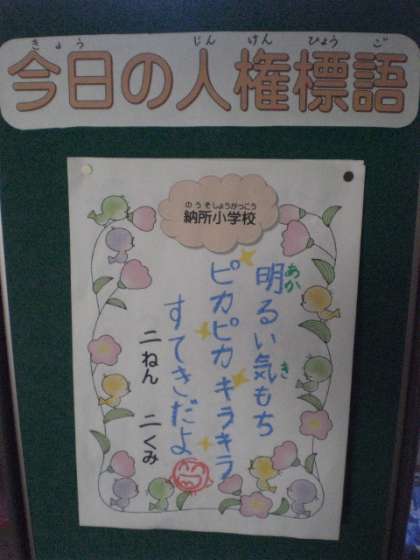 きょう じんけんひょうご
今日の人権標語
のうそしょうがっこう
納所小学校
あか
明るい気もち
き
ピカピカキラキラ
すてきだよ
二ねん 二くみ